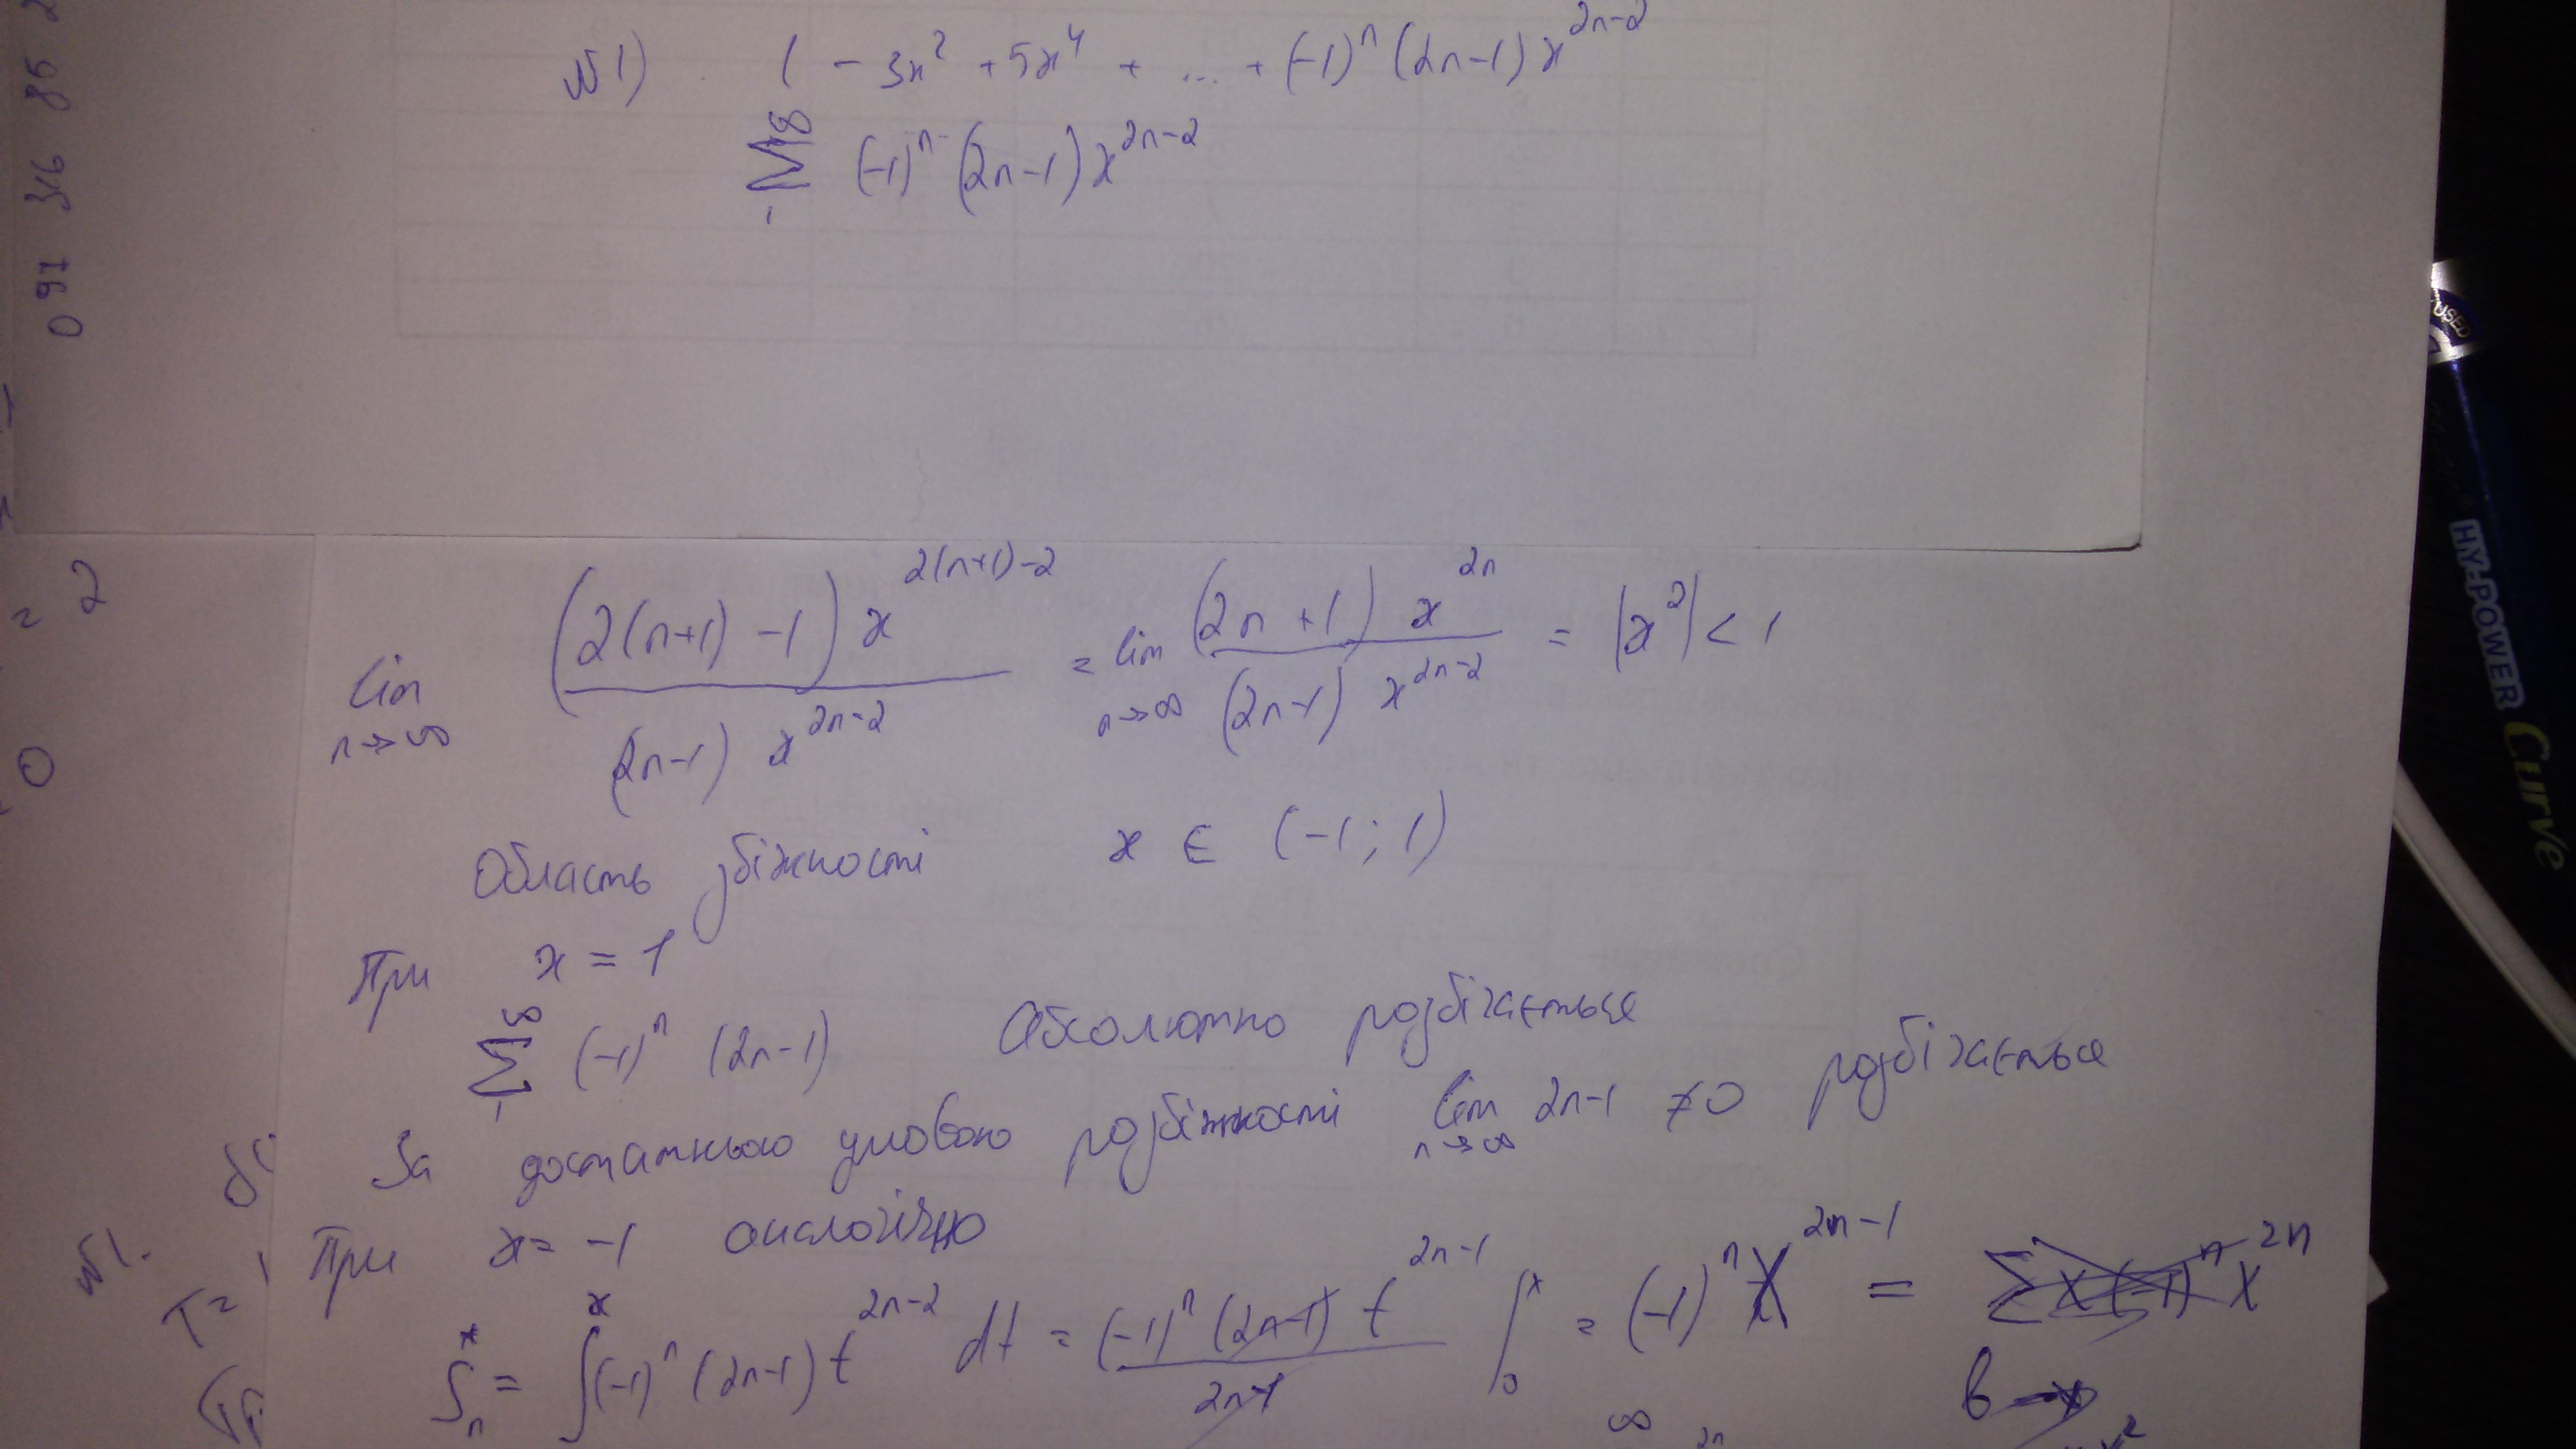 №1) 1 - 3x² + 5x⁴ + ... + (-1)ⁿ (2n-1) x²ⁿ⁻²
∞ Σ 1 (-1)ⁿ (2n-1) x²ⁿ⁻²
0 97 316 85 2
= 2
0
lim n→∞ (2(n+1) -1) x^2(n+1)-2 / (2n-1) x²ⁿ⁻² = lim n→∞ (2n+1) x²ⁿ / (2n-1) x²ⁿ⁻² = |x²| < 1
Область збіжності x ∈ (-1; 1)
При x = 1
∞ Σ 1 (-1)ⁿ (2n-1) Абсолютно розбігається
За достатньою умовою розбіжності lim n→∞ 2n-1 ≠ 0 розбігається
При x = -1 аналогічно
№1.
T =
Sₙ* = ∫ˣ (-1)ⁿ (2n-1) t²ⁿ⁻² dt = (-1)ⁿ (2n-1) t²ⁿ⁻¹ / 2n-1 |₀ˣ = (-1)ⁿ X²ⁿ⁻¹ =
∞
2n
USED
HY-POWER Curve